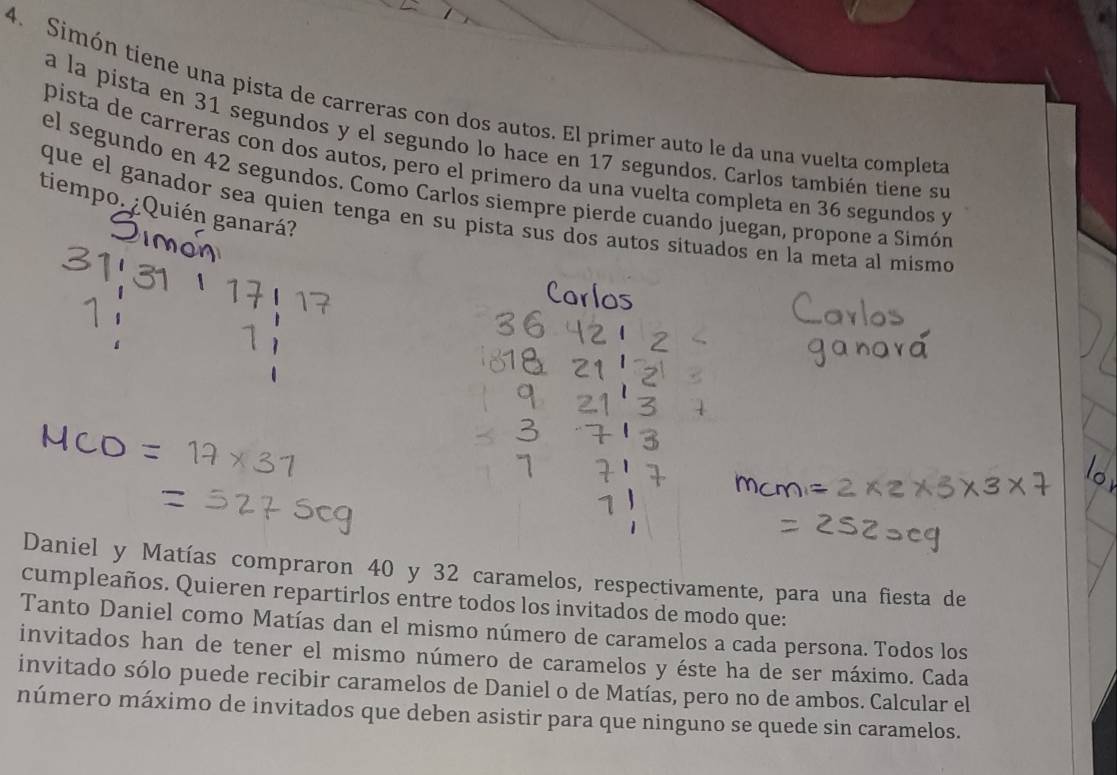 4. Simón tiene una pista de carreras con dos autos. El primer auto le da una vuelta completa
a la pista en 31 segundos y el segundo lo hace en 17 segundos. Carlos también tiene su
pista de carreras con dos autos, pero el primero da una vuelta completa en 36 segundos y
el segundo en 42 segundos. Como Carlos siempre pierde cuando juegan, propone a Simón
que el ganador sea quien tenga en su pista sus dos autos situados en la meta al mismo
tiempo. ¿Quién ganará?
Simón
31 31 17 17
1 1
MCD = 17 x 31
= 527 seg
Carlos
36 42 2
18 21 2
9 21 3
3 7 3
1 7 7
1
Carlos
ganará
mcm = 2 x 2 x 3 x 3 x 7
= 252 seg
Daniel y Matías compraron 40 y 32 caramelos, respectivamente, para una fiesta de
cumpleaños. Quieren repartirlos entre todos los invitados de modo que:
Tanto Daniel como Matías dan el mismo número de caramelos a cada persona. Todos los
invitados han de tener el mismo número de caramelos y éste ha de ser máximo. Cada
invitado sólo puede recibir caramelos de Daniel o de Matías, pero no de ambos. Calcular el
número máximo de invitados que deben asistir para que ninguno se quede sin caramelos.